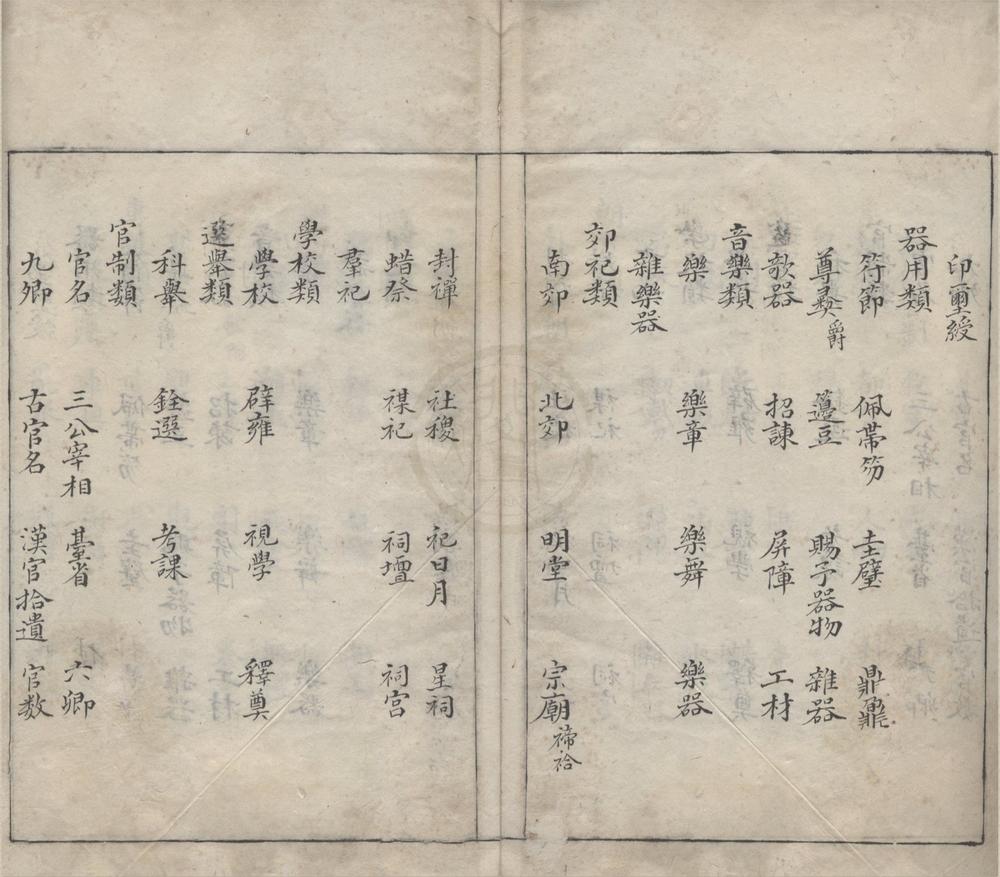 印璽綬
器用類
符節 佩帶笏 圭璧 鼎鼐
尊彝爵 籩豆 賜予器物 雜器
欹器 招諫 屏障 工材
音樂類
樂 樂章 樂舞 樂器
雜樂器
郊祀類
南郊 北郊 明堂 宗廟禘祫
封禪 社稷 祀日月 星祠
蜡祭 禖祀 祠壇 祠宮
羣祀
學校類
學校 辟雍 視學 釋奠
選舉類
科舉 銓選 考課
官制類
官名 三公宰相 臺省 六卿
九卿 古官名 漢官拾遺 官数